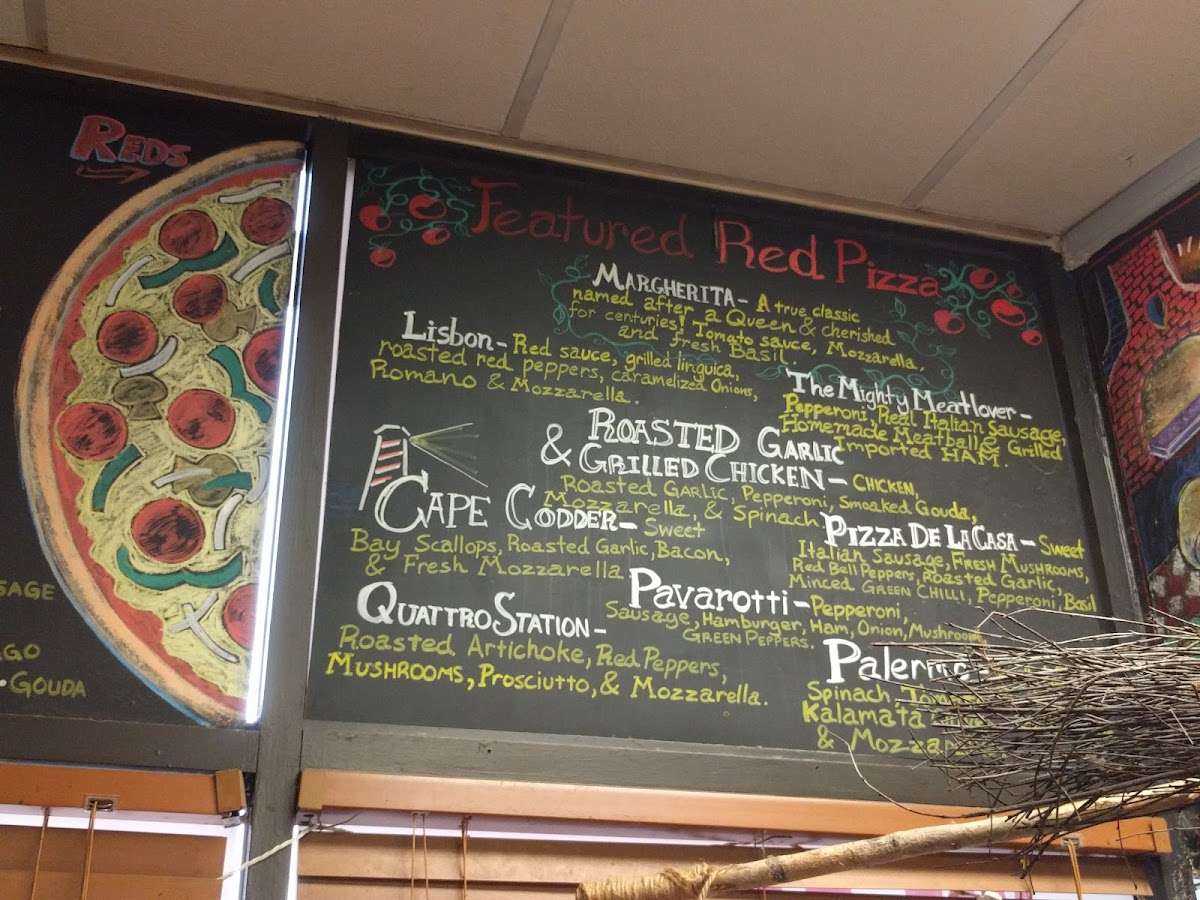 REDS
SAGE
GO
GOUDA
Featured Red Pizza
MARGHERITA - A true classic
named after a Queen & cherished
for centuries! Tomato sauce, Mozzarella.
and fresh Basil.
Lisbon - Red sauce, grilled linguica,
roasted red peppers, caramelized Onions,
Romano & Mozzarella.
The Mighty Meatlover -
Pepperoni, Real Italian Sausage,
Homemade Meatball & Grilled
Imported HAM.
ROASTED GARLIC
& GRILLED CHICKEN - CHICKEN,
Roasted GARLIC, Pepperoni, Smoaked Gouda,
Mozzarella, & Spinach
CAPE CODDER - Sweet
Bay Scallops, Roasted Garlic, Bacon,
& Fresh Mozzarella.
PIZZA DE LA CASA - Sweet
Italian Sausage, FRESH MUSHROOMS,
Red Bell Peppers, Roasted Garlic,
Minced GREEN CHILLI, Pepperoni, Basil
Pavarotti - Pepperoni,
Sausage, Hamburger, Ham, Onion, Mushrooms
GREEN PEPPERS.
QUATTRO STATION -
Roasted Artichoke, Red Peppers,
MUSHROOMS, Prosciutto, & Mozzarella.
Palermo
Spinach,
Kalamata
& Mozzar